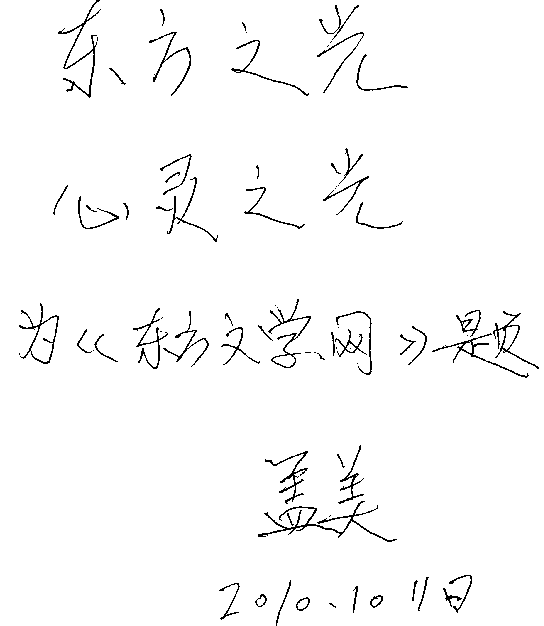 东方之光
心灵之光
为《东方文学网》题
盖美
2010.10 11日